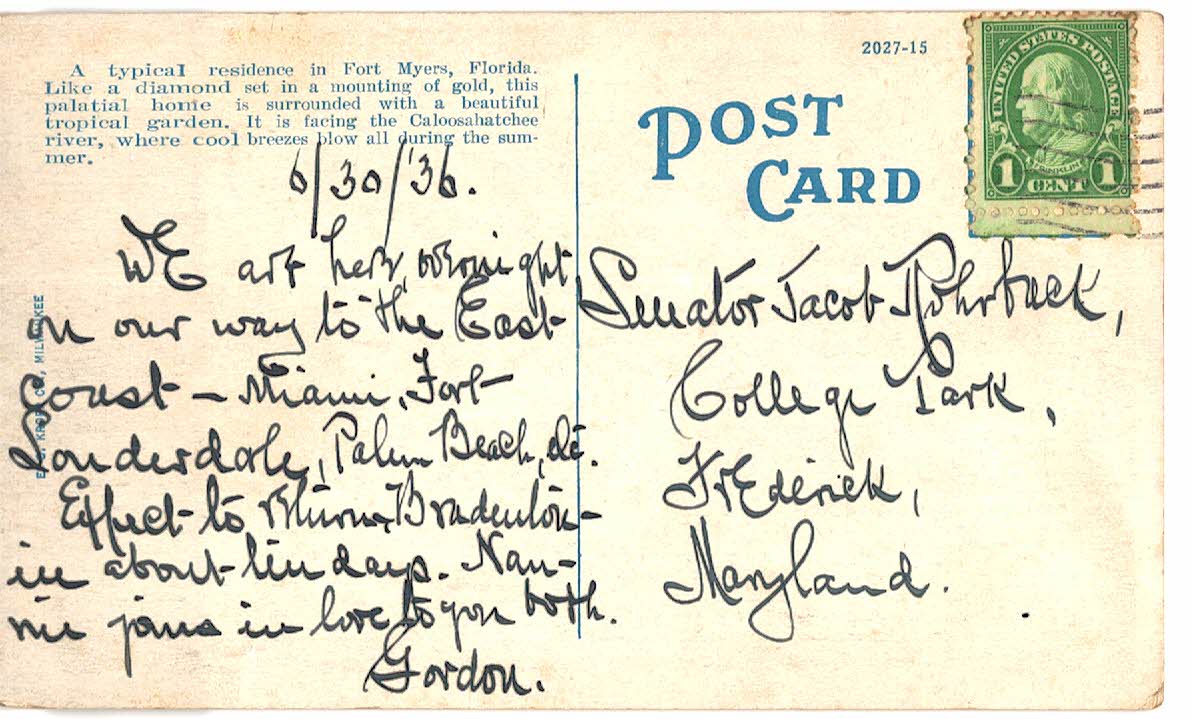 A typical residence in Fort Myers, Florida.
Like a diamond set in a mounting of gold, this
palatial home is surrounded with a beautiful
tropical garden. It is facing the Caloosahatchee
river, where cool breezes blow all during the sum-
mer.
2027-15
POST
CARD
UNITED STATES POSTAGE
FRANKLIN
1 CENT 1
6/30/'36.
We are here, overnight
on our way to the East
Coast - Miami, Fort
Lauderdale, Palm Beach, etc.
Expect to return Bradenton
in about ten days. Nan-
nie joins in love to you both.
Gordon.
Senator Jacob Rohrback,
College Park,
Frederick,
Maryland.
E. C. KROPP CO., MILWAUKEE